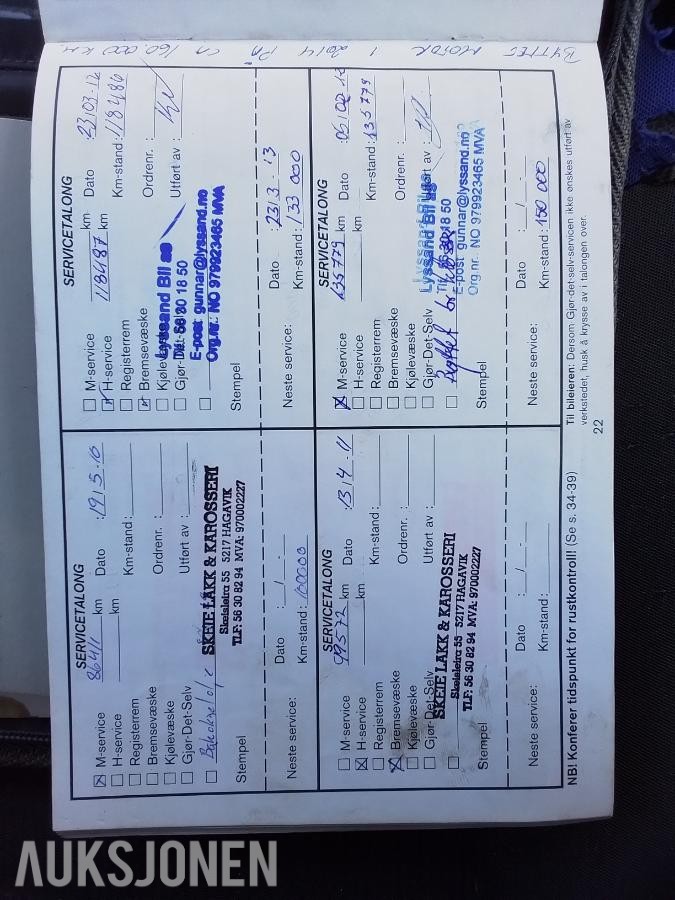 BYTTET MOTOR I 2014 PÅ CA 160.000 KM
SERVICETALONG
86411 km Dato :19/5.10
M-service
H-service km Km-stand:
Registerrem
Bremsevæske Ordrenr. :
Kjølevæske
Gjør-Det-Selv Utført av :
Bakakselolje
SKEIE LAKK & KAROSSERI
Skeisleira 55 5217 HAGAVIK
TLF: 56 30 82 94 MVA: 970002227
Stempel
Dato : / -
Neste service: Km-stand: 100000
SERVICETALONG
118487 km Dato :23/03.12
M-service
H-service km Km-stand: 118486
Registerrem
Bremsevæske Ordrenr. :
Kjølevæske
Gjør-Det-Selv Utført av :
Lyssand Bil as
Tlf. 56 30 18 50
E-post gunnar@lyssand.no
Org.nr. NO 979923465 MVA
Stempel
Dato :23/3.13
Neste service: Km-stand: 133 000
SERVICETALONG
99572 km Dato :13/4.11
M-service
H-service Km-stand:
Registerrem
Bremsevæske Ordrenr. :
Kjølevæske
Gjør-Det-Selv Utført av :
SKEIE LAKK & KAROSSERI
Skeisleira 55 5217 HAGAVIK
TLF: 56 30 82 94 MVA: 970002227
Stempel
Dato : / -
Neste service: Km-stand:
SERVICETALONG
135779 km Dato
M-service
H-service km Km-stand: 135779
Registerrem
Bremsevæske Ordrenr. :
Kjølevæske
Gjør-Det-Selv Utført av :
Lyssand Bil as
Tlf. 56 30 18 50
E-post gunnar@lyssand.no
Org.nr. NO 979923465 MVA
Stempel
Dato : / -
Neste service: Km-stand: 150 000
NB! Konferer tidspunkt for rustkontroll! (Se s. 34-39)
Til bileieren: Dersom Gjør-det-selv-servicen ikke ønskes utført av
verkstedet, husk å krysse av i talongen over.
22
AUKSJONEN